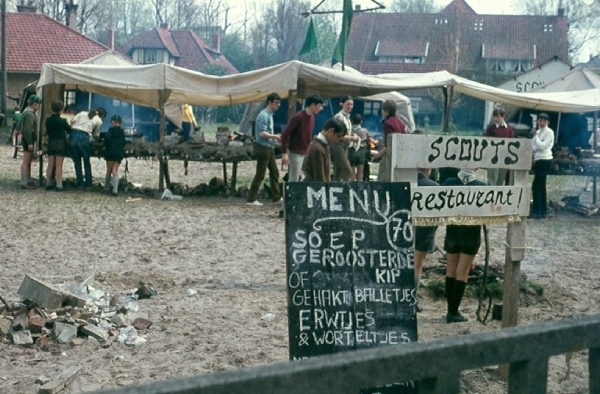 SCOUTS
Restaurant!
SCO
MENU
70
SOEP
GEROOSTERDE
KIP
OF
GEHAKT BALLETJES
ERWTJES
& WORTELTJES